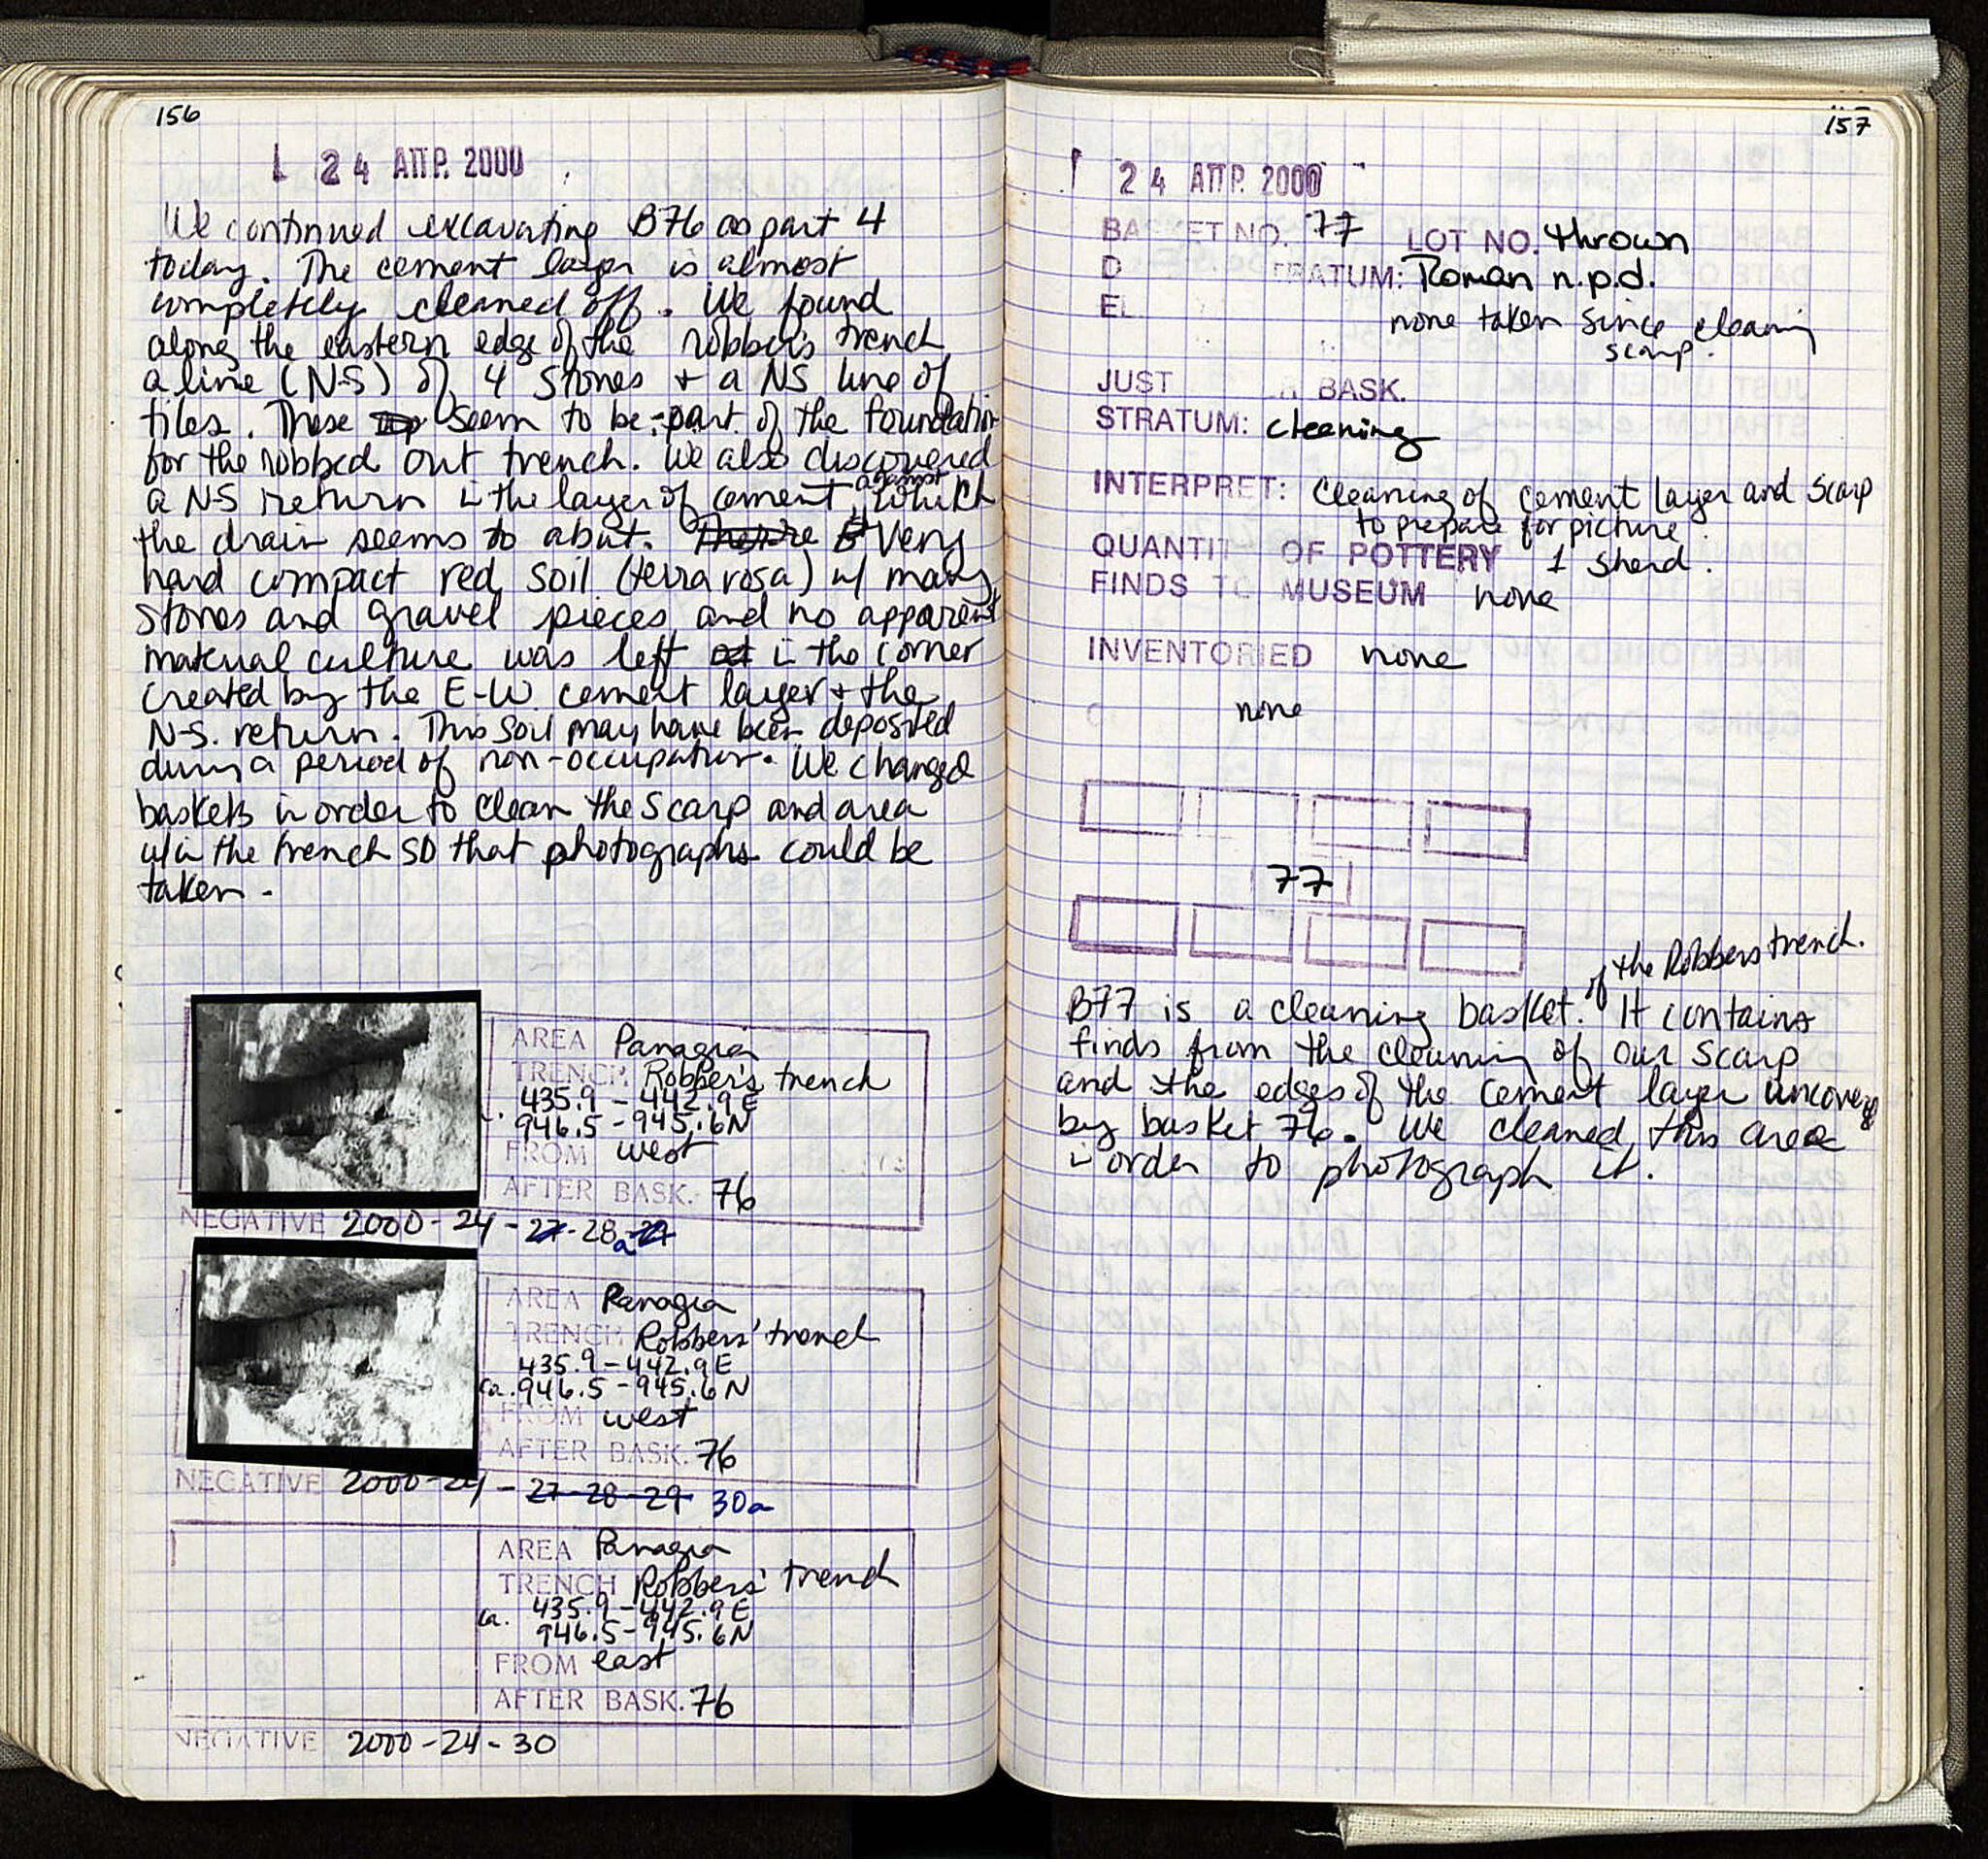 156
24 ΑΠΡ. 2000
We continued excavating B76 as part 4
today. The cement layer is almost
completely cleaned off. We found
along the eastern edge of the robber's trench
a line (N-S) of 4 stones + a NS line of
tiles. These seem to be part of the foundation
for the robbed out trench. We also discovered
a N-S return in the layer of cement against which
the drain seems to abut. Very
hard compact red soil (terra rosa) w/ many
stones and gravel pieces and no apparent
material culture was left in the corner
created by the E-W cement layer + the
N-S. return. This soil may have been deposited
during a period of non-occupation. We changed
baskets in order to clean the scarp and area
w/in the trench so that photographs could be
taken.
AREA Panagia
TRENCH Robber's trench
435.9 - 442.9 E
946.5 - 945.6 N
FROM west
AFTER BASK. 76
NEGATIVE 2000-24-27-28a-29
AREA Panagia
TRENCH Robbers' trench
435.9 - 442.9 E
ca. 946.5 - 945.6 N
FROM west
AFTER BASK. 76
NEGATIVE 2000-24-27-28-29 30a
AREA Panagia
TRENCH Robbers' trench
ca. 435.9 - 442.9 E
946.5 - 945.6 N
FROM east
AFTER BASK. 76
NEGATIVE 2000-24-30
157
24 ΑΠΡ. 2000
BASKET NO. 77 LOT NO. thrown
STRATUM: Roman n.p.d.
none taken since cleaning
scarp.
JUST BASK.
STRATUM: cleaning
INTERPRET: cleaning of cement layer and scarp
to prepare for picture.
QUANTITY OF POTTERY 1 sherd.
FINDS TO MUSEUM none
INVENTORIED none
none
77
of the Robbers trench.
B77 is a cleaning basket. It contains
finds from the cleaning of our scarp
and the edges of the cement layer uncovered
by basket 76. We cleaned this area
in order to photograph it.